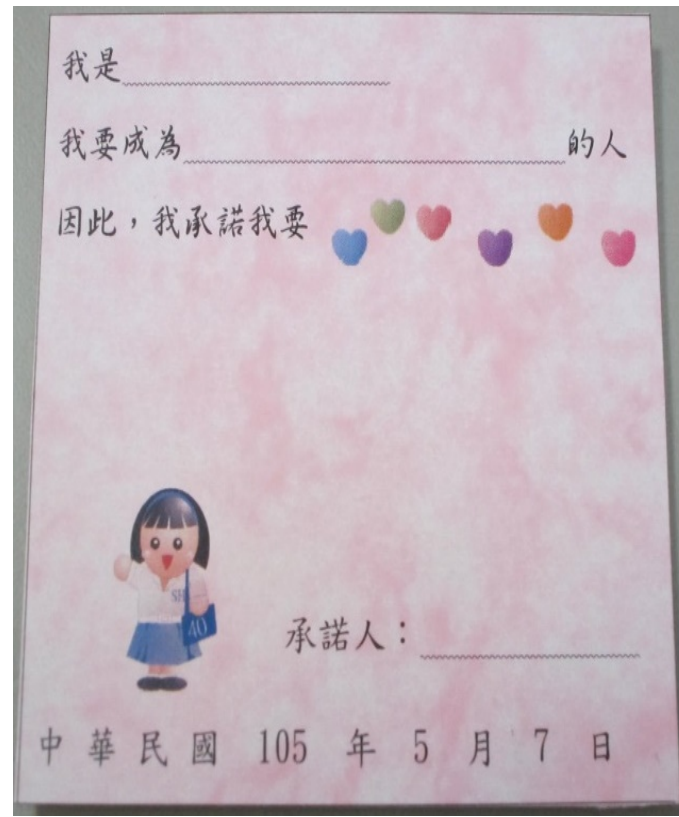 我是
我要成為 的人
因此，我承諾我要
SH
40
承諾人：
中華民國 105 年 5 月 7 日